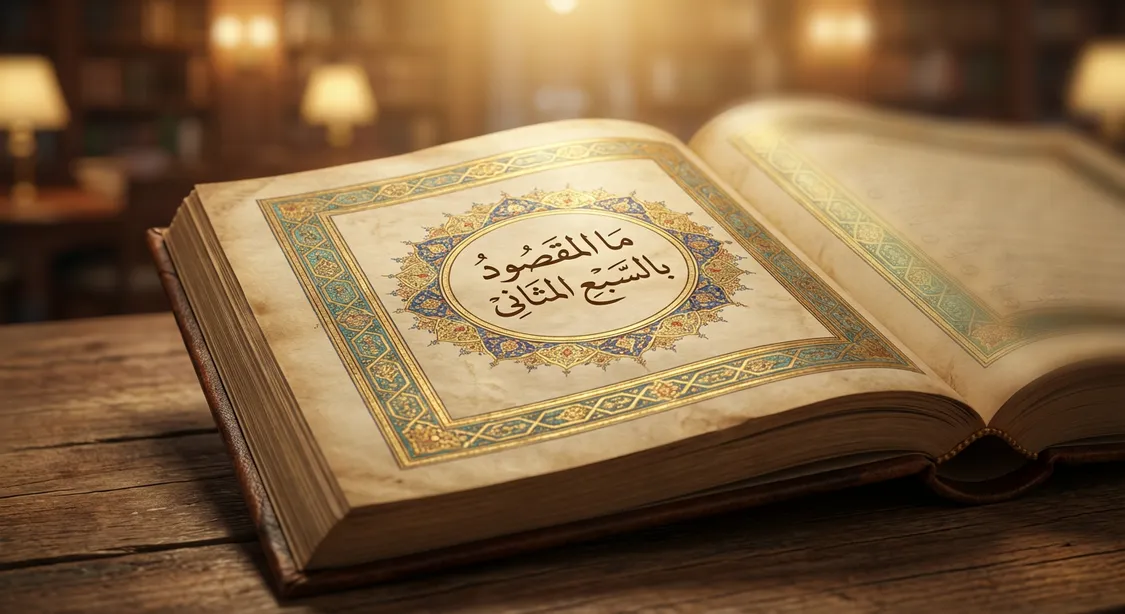 مَا المَقصُودُ
بالسَّبْعِ المَثَانِي